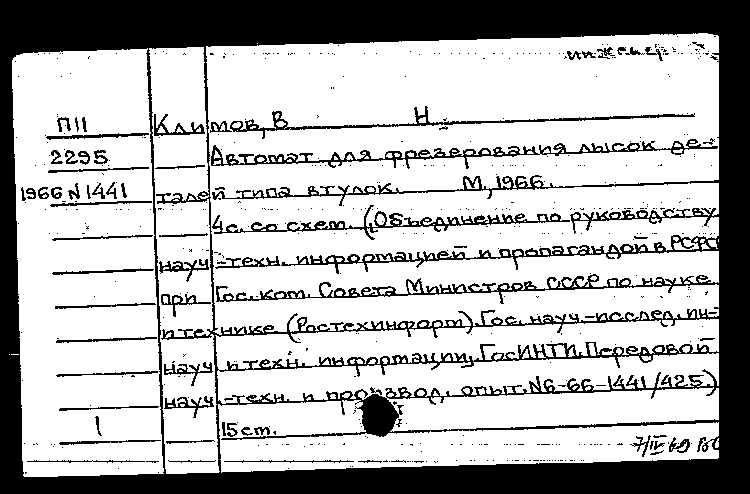 инженер
П11 Климов, В Н.
2295 Автомат для фрезерования лысок де-
1966 N1441 талей типа втулок. М, 1966.
4с. со схем. (Объединение по руководству
науч.-техн. информацией и пропагандой в РСФСР
при Гос. ком. Совета Министров СССР по науке
и технике (Ростехинформ). Гос. науч.-исслед. ин-т
науч. и техн. информации. ГосИНТИ. Передовой
науч.-техн. и производ. опыт. N6-66-1441/425.)
1 15 ст.
7/IV 69